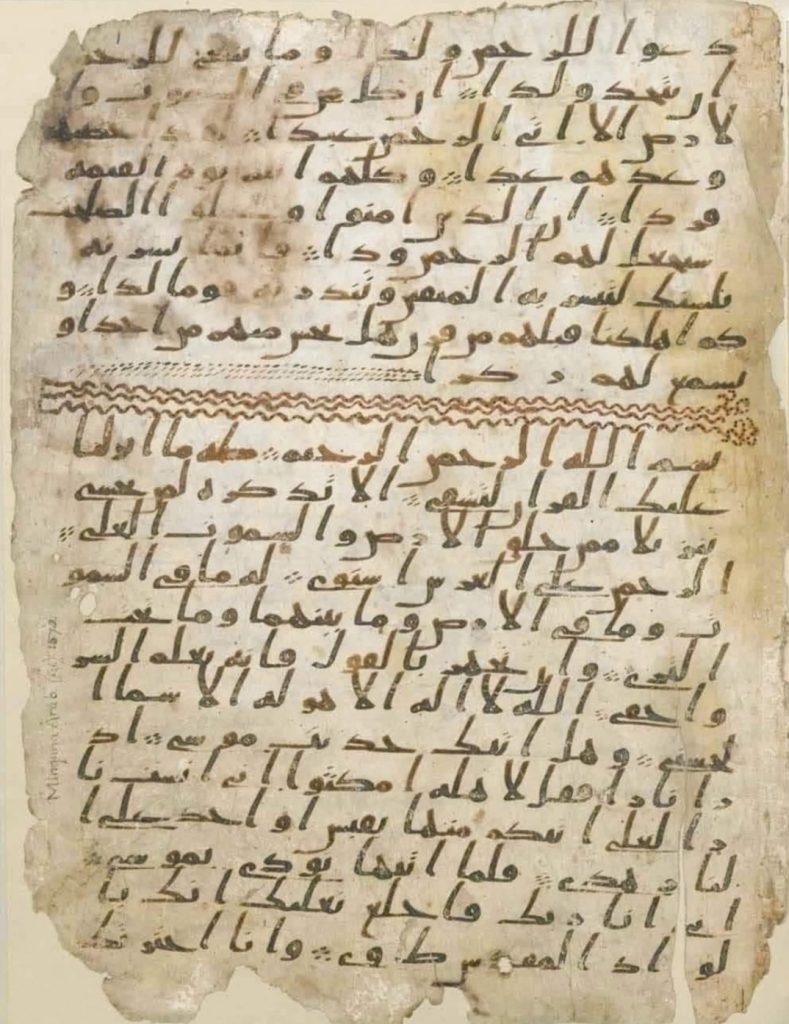 دعوا للرحمن ولدا وما ينبغي للرحمن
ان يتخذ ولدا ان كل من في السموت وا
لارض الا اتي الرحمن عبدا لقد احصيهم
وعدهم عدا وكلهم اتيه يوم القيمه
فردا ان الذين امنوا وعملوا الصلحت
سيجعل لهم الرحمن ودا فانما يسرنه
بلسنك لتبشر به المتقين وتنذر به قوما لدا و
كم اهلكنا قبلهم من قرن هل تحس منهم من احد او
تسمع لهم ركزا
بسم الله الرحمن الرحيم طه ما انزلنا
عليك القران لتشقى الا تذكره لمن يخشى
تنزيلا ممن خلق الارض والسموت العلى
الرحمن على العرش استوى له ما في السمو
ت وما في الارض وما بينهما وما تحت
الثرى وان تجهر بالقول فانه يعلم السر
واخفى الله لا اله الا هو له الاسما ا
لحسنى وهل اتيك حديث موسى اذ
را نارا فقل لاهله امكثوا اني انست نا
را لعلي اتيكم منها بقبس او اجد على ا
لنار هدى فلما اتيها نودي يموسى
اني انا ربك فاخلع نعليك انك با
لواد المقدس طوى وانا اخترتك
Mingana Arab [Isl] 1572